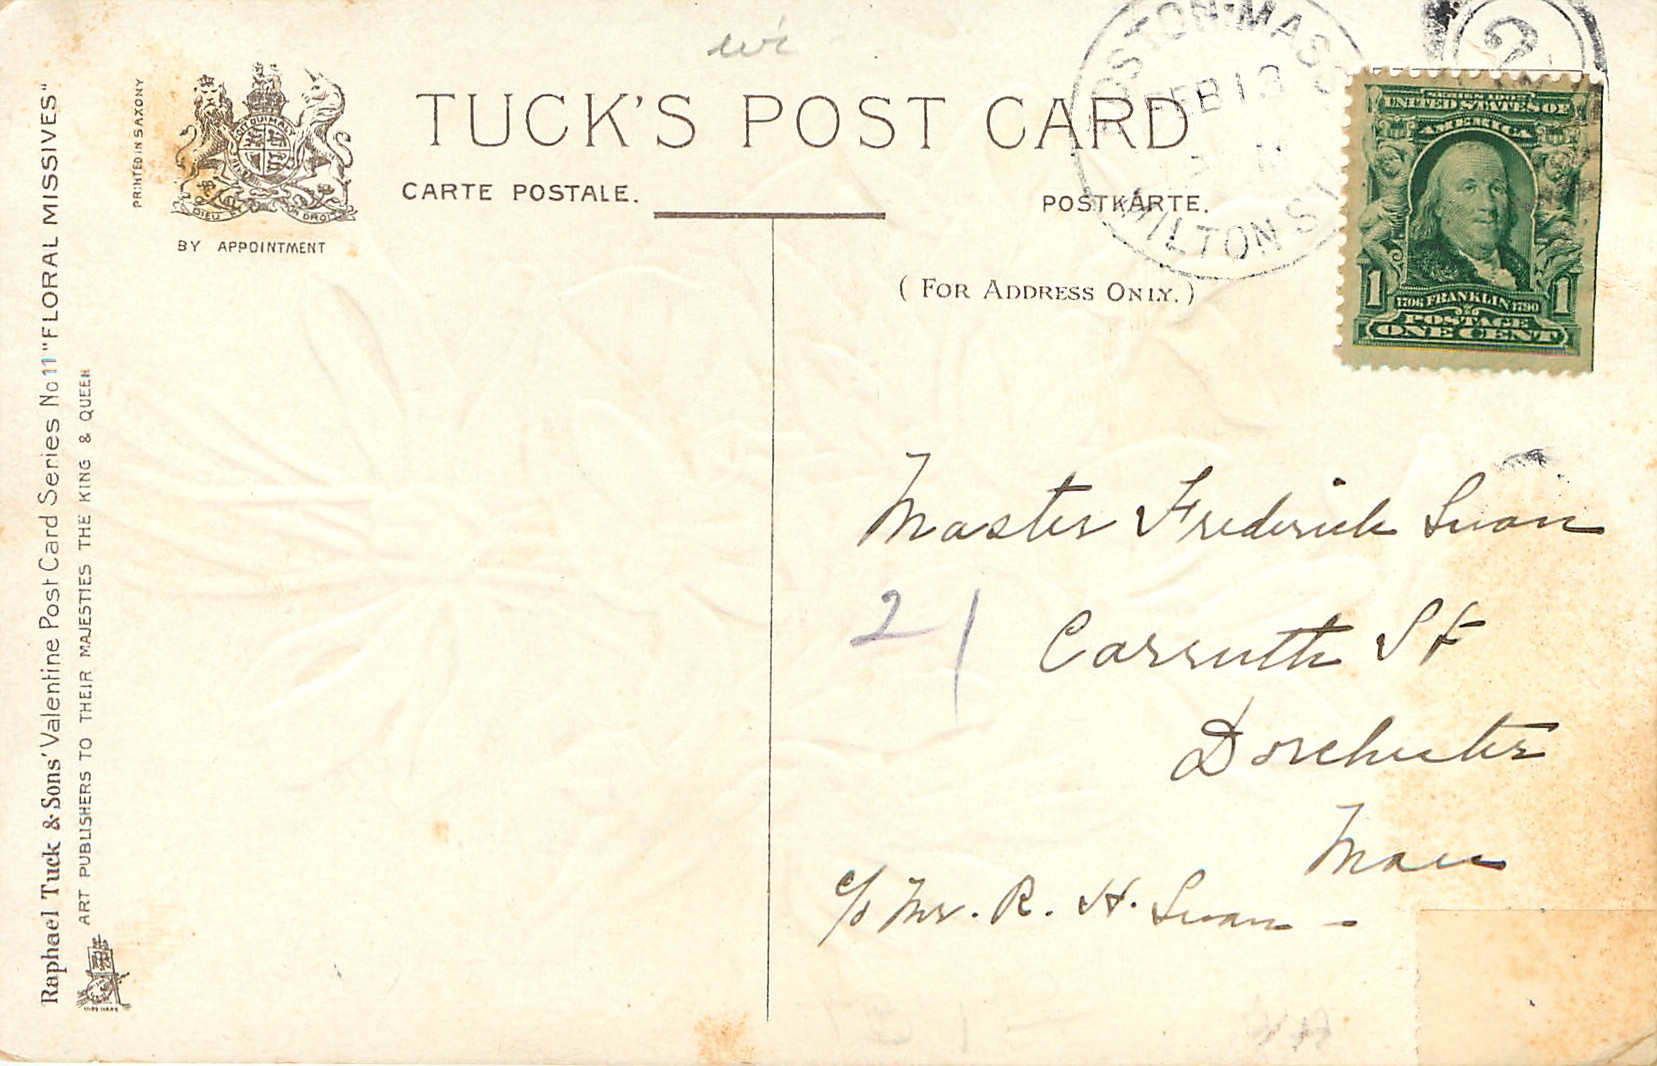 wi
TUCK'S POST CARD
CARTE POSTALE.
POSTKARTE.
(FOR ADDRESS ONLY.)
PRINTED IN SAXONY
DIEU ET MON DROIT
BY APPOINTMENT
Raphael Tuck & Sons' Valentine Post Card Series No 11 "FLORAL MISSIVES"
ART PUBLISHERS TO THEIR MAJESTIES THE KING & QUEEN
BOSTON, MASS.
FEB 13
MILTON ST
2
UNITED STATES OF
AMERICA
1 1706 FRANKLIN 1790 1
POSTAGE
ONE CENT
Master Frederick Swan
21 Carruth St
Dorchester
Mass
c/o Mr. R. H. Swan -